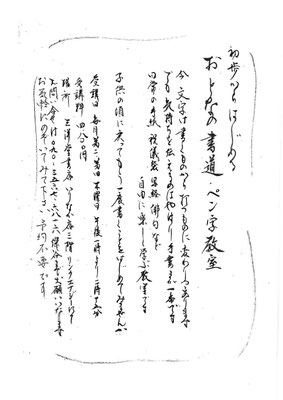 初歩からはじめる
おとなの書道・ペン字教室
今 文字は書くものから打つものに変わりつつあります
でも 気持ちを伝えるのはやはり手書きが一番です
日常の手紙 祝儀袋 写経 俳句など
自由に楽しく学ぶ教室です
子供の頃に戻ってもう一度書くことをはじめてみませんか
受講日 毎月第二 第四木曜日 午後一時より二時
受講料
場所 三洋堂書店 いりなか店 二階
お問い合せは
お気軽にのぞいてみて下さい 予約不要です